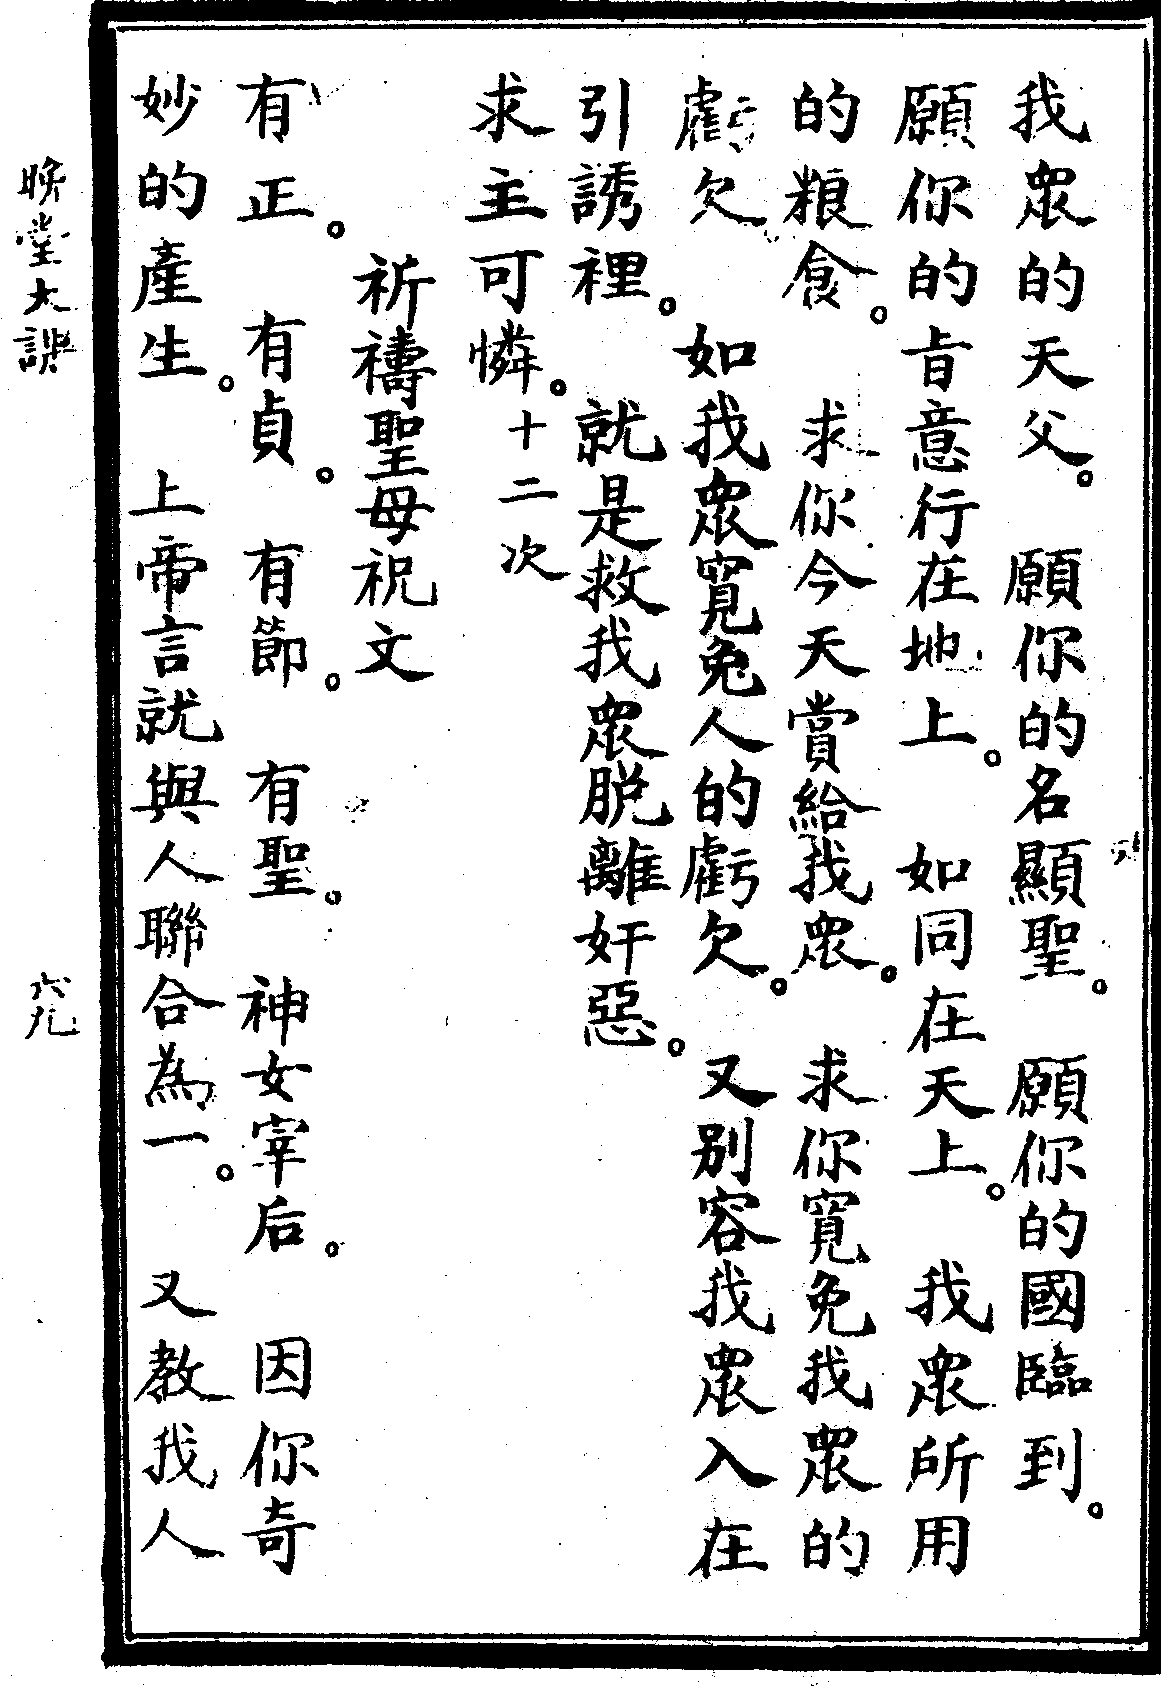 我眾的天父。　願你的名顯聖。　願你的國臨到。
願你的旨意行在地上。　如同在天上。　我眾所用
的粮食。　求你今天賞給我眾。　求你寬免我眾的
虧欠　如我眾寬免人的虧欠。　又別容我眾入在
引誘裡。　就是救我眾脱離奸惡。
求主可憐。十二次
祈禱聖母祝文
有正。　有貞。　有節。　有聖。　神女宰后。　因你奇
妙的產生。　上帝言就與人聯合為一。　又教我人
晚堂大課
六九